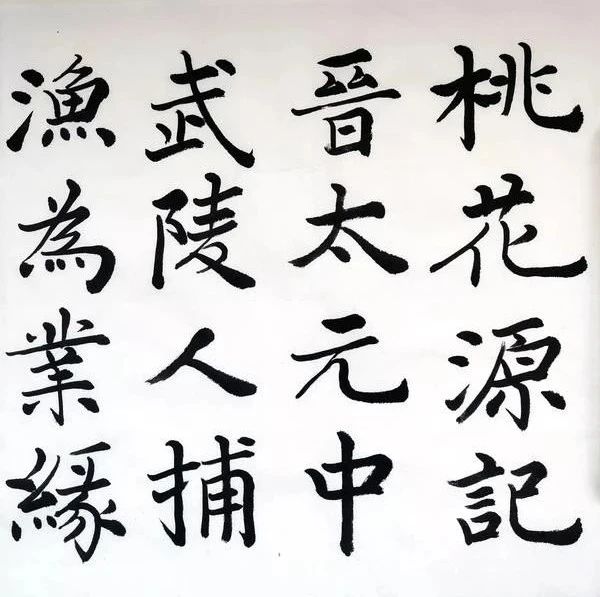 桃花源記
晉太元中
武陵人捕
漁為業緣